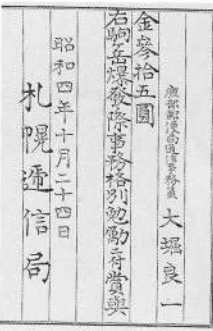 大堀良一
金參拾五圓
右駒岳爆發際事務格別勉勵ニ付賞與
昭和四年十月二十四日
札幌遞信局